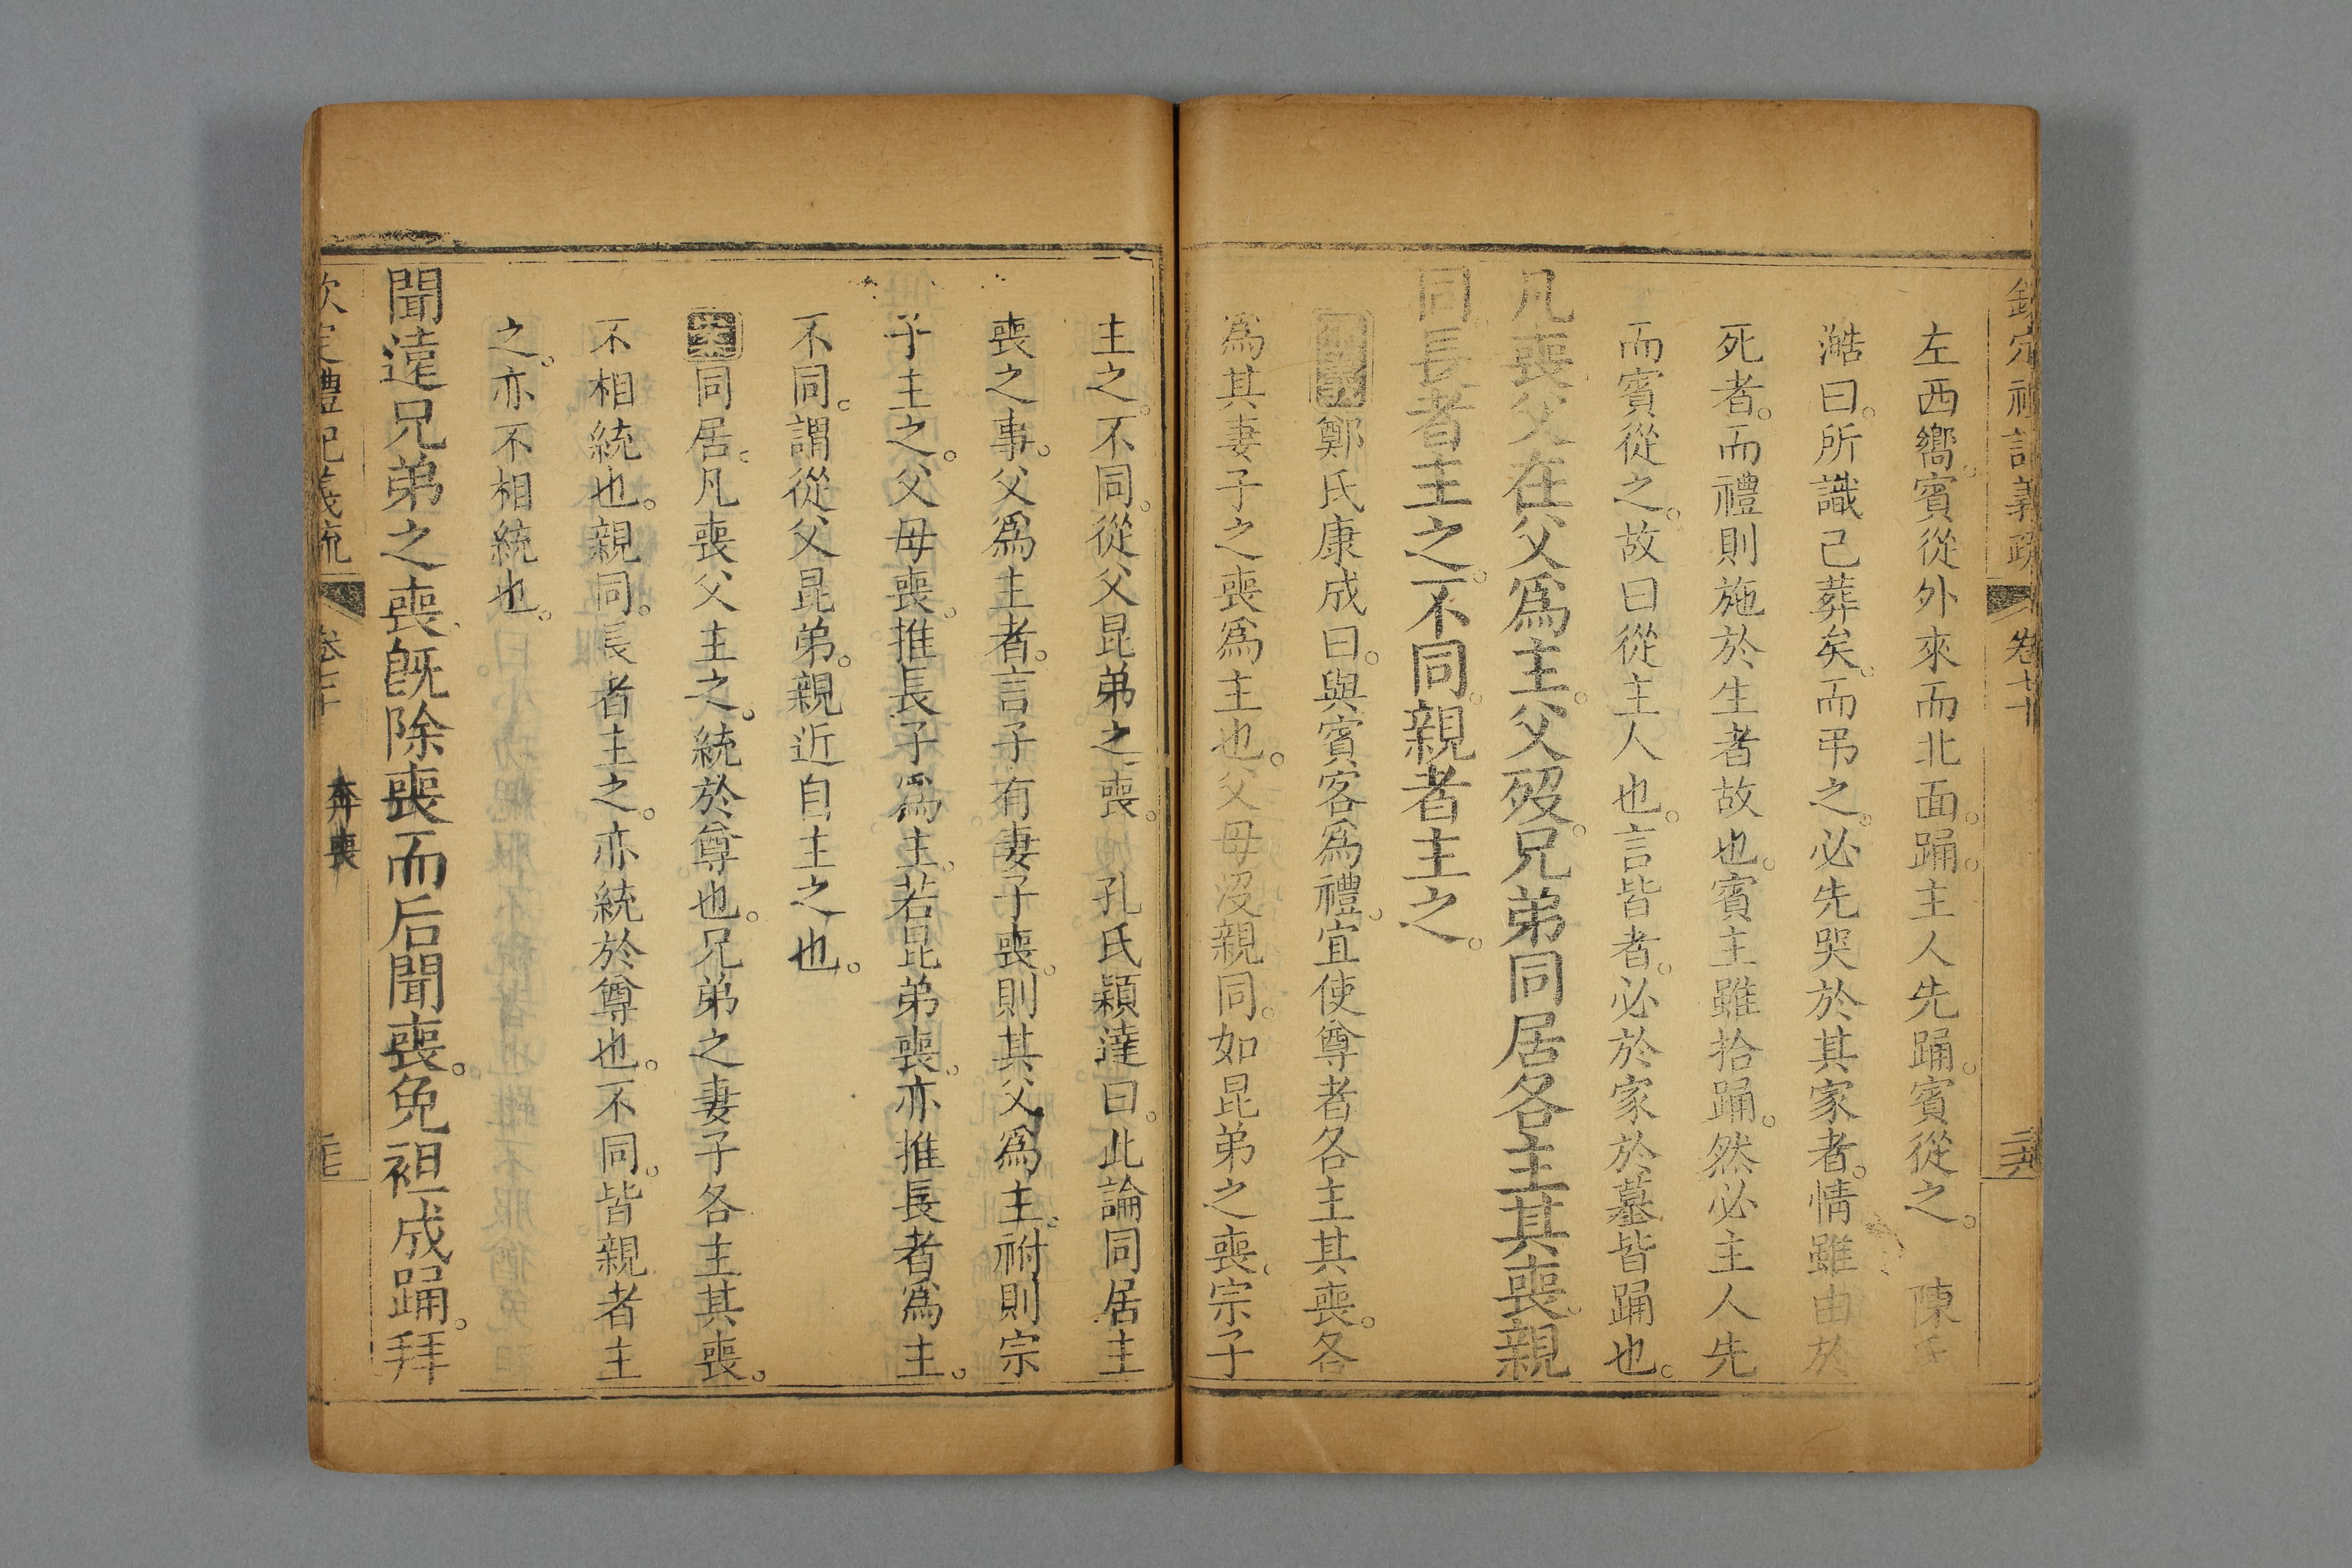 欽定禮記義疏 卷七十 二六
左西嚮。賓從外來而北面。踊。主人先踊。賓從之。 陳氏
澔曰。所識已葬矣。而弔之。必先哭於其家者。情雖由於
死者。而禮則施於生者故也。賓主雖拾踊。然必主人先
而賓從之。故曰從主人也。言皆者。必於家於墓皆踊也。
凡喪父在父爲主。父歿。兄弟同居各主其喪。親
同。長者主之。不同。親者主之。
鄭氏康成曰。與賓客爲禮。宜使尊者各主其喪。各
爲其妻子之喪爲主也。父母沒親同。如昆弟之喪、宗子
主之。不同。從父昆弟之喪。 孔氏穎達曰。此論同居主
喪之事。父爲主者。言子有妻子喪。則其父爲主。祔則宗
子主之。父母喪。推長子爲主。若昆弟喪。亦推長者爲主。
不同。謂從父昆弟。親近自主之也。
案同居。凡喪父主之。統於尊也。兄弟之妻子各主其喪。
不相統也。親同。長者主之。亦統於尊也。不同。皆親者主
之。亦不相統也。
聞遠兄弟之喪、旣除喪而后聞喪。免袒成踊。拜
欽定禮記義疏 卷七十 奔喪 二七